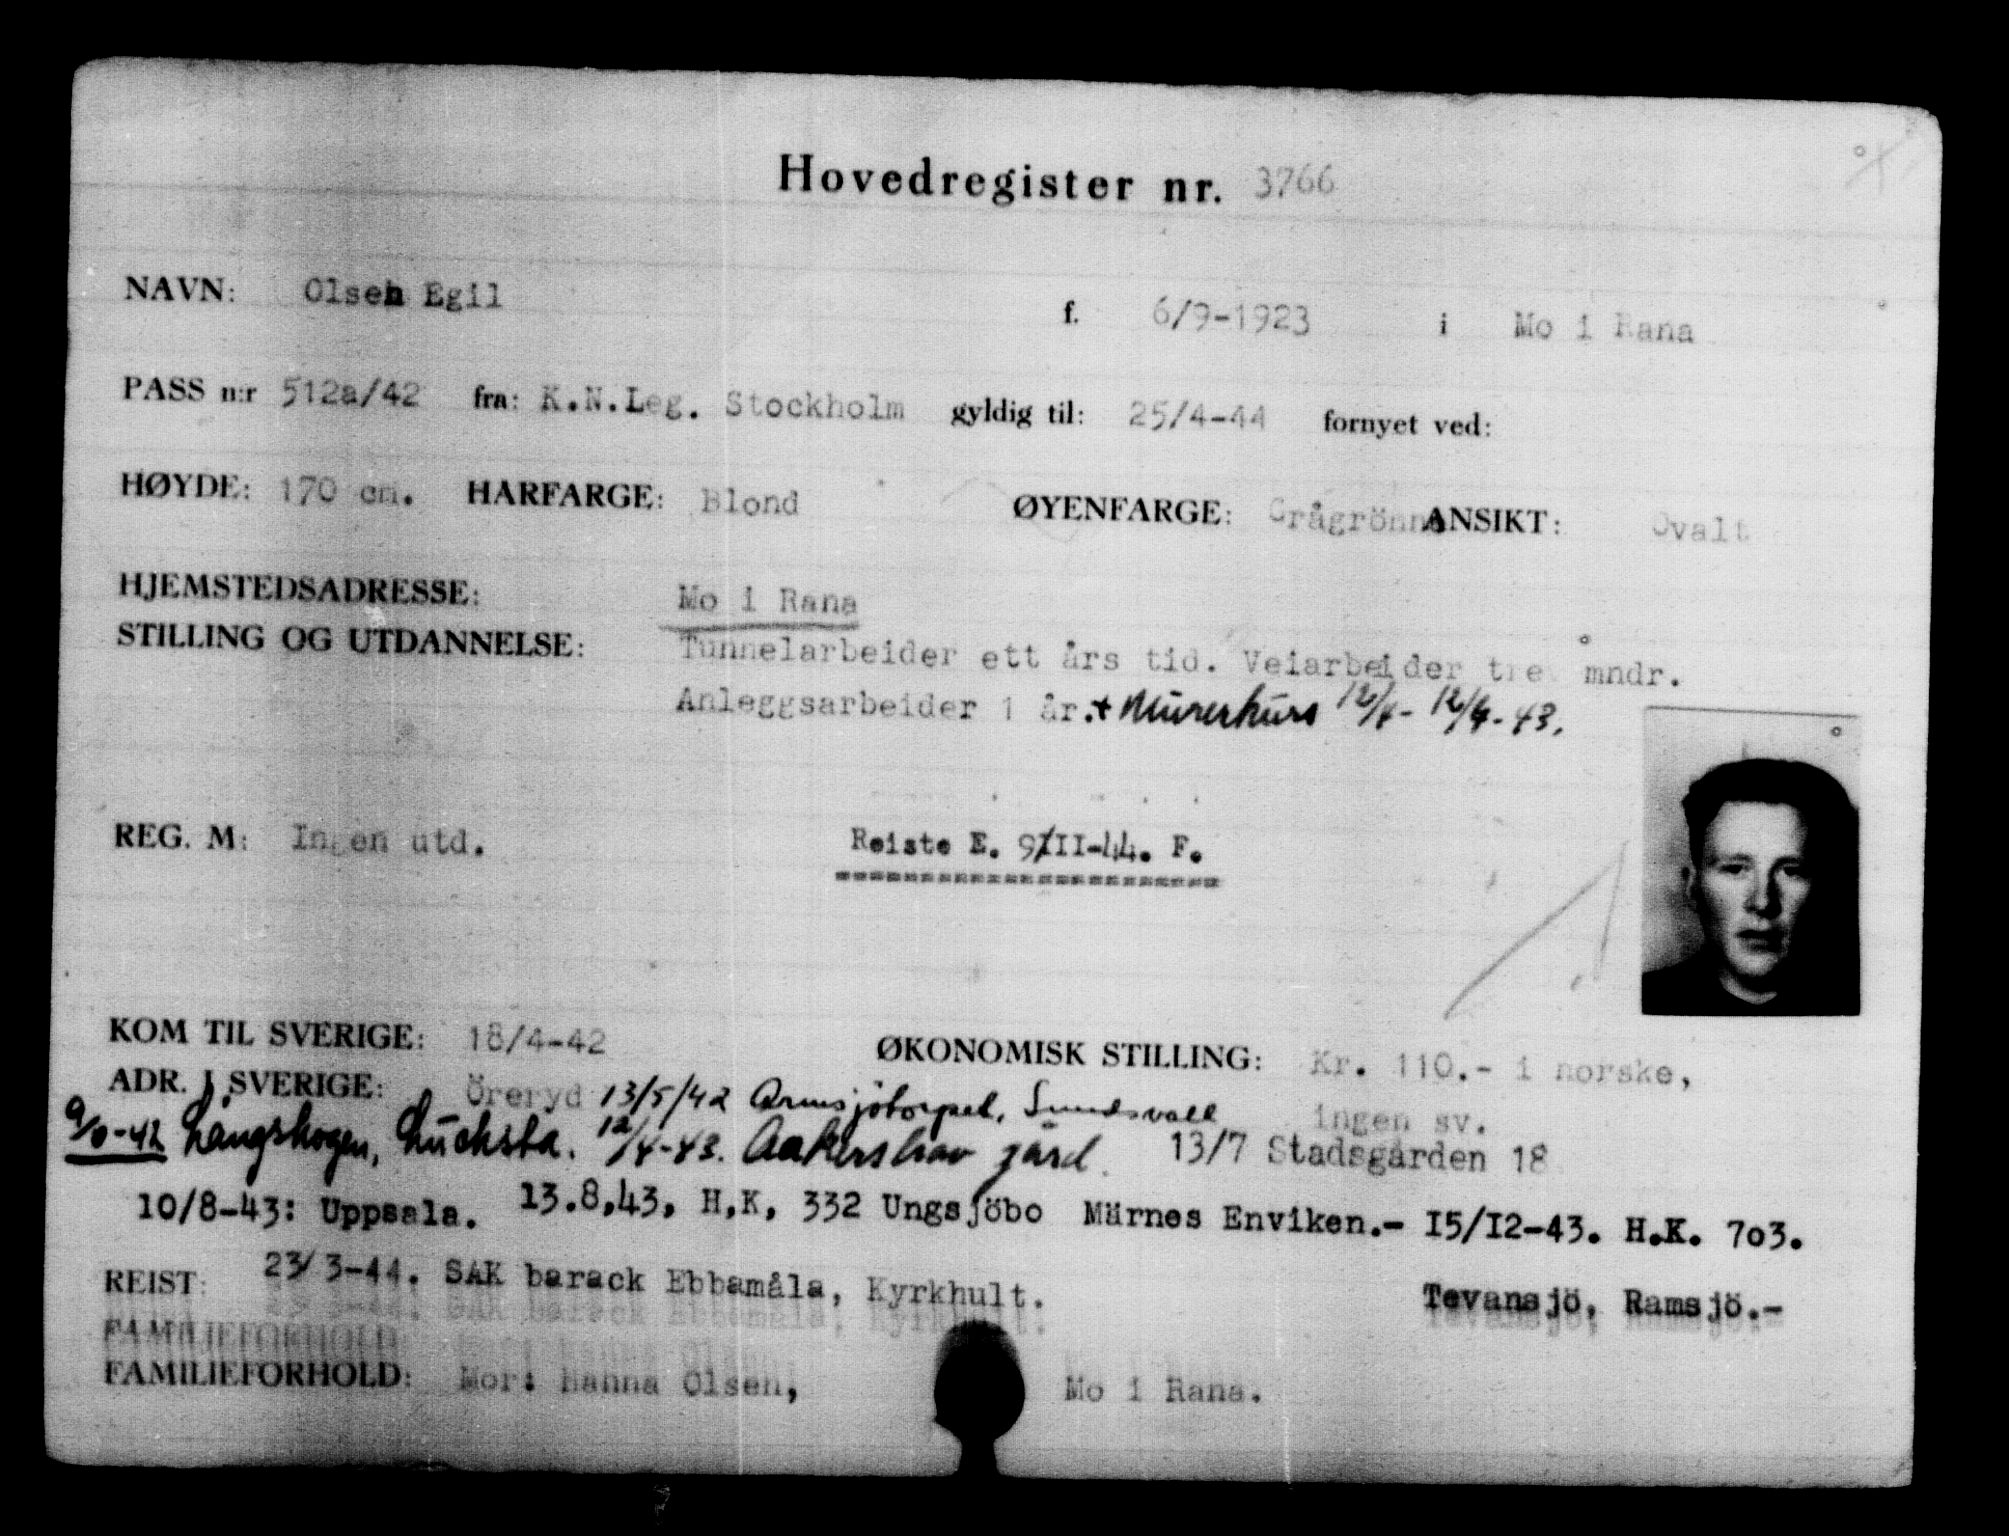 Hovedregister nr. 3766
NAVN: Olsen Egil f. 6/9-1923 i Mo i Rana
PASS n:r 512a/42 fra: K.N.Leg. Stockholm gyldig til: 25/4-44 fornyet ved:
HØYDE: 170 cm. HARFARGE: Blond ØYENFARGE: Grågrönne ANSIKT: Ovalt
HJEMSTEDSADRESSE: Mo i Rana
STILLING OG UTDANNELSE: Tunnelarbeider ett års tid. Veiarbeider tre mndr.
Anleggsarbeider 1 år. + Murerkurs 12/4 - 12/4-43.
REG. M: Ingen utd. Reiste E. 9/II-44. F.
KOM TIL SVERIGE: 18/4-42 ØKONOMISK STILLING: Kr. 110.- i norske,
ADR. I SVERIGE: Öreryd 13/5/42 Armsjötorpet, Sundsvall ingen sv.
Långskogen, Lucksta. 12/4-43. Aakershov gård. 13/7 Stadsgården 18
10/8-43: Uppsala. 13.8,43, H,K, 332 Ungsjöbo Märnes Enviken.- I5/I2-43. H.K. 7o3.
REIST: 23/3-44. SAK barack Ebbamåla, Kyrkhult. Tevansjö, Ramsjö.-
FAMILIEFORHOLD: Mor: Hanna Olsen, Mo i Rana.